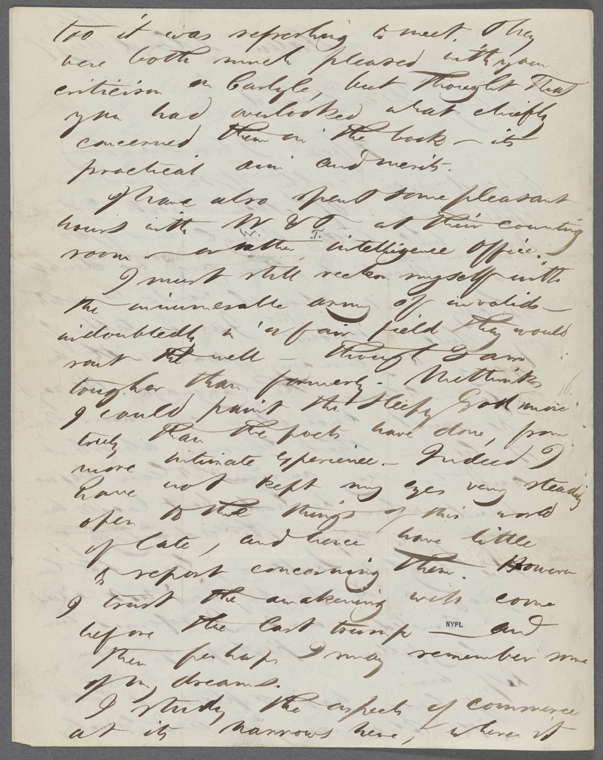 too it was refreshing to meet. They
were both much pleased with your
criticism on Carlyle, but thought that
you had overlooked what chiefly
concerned them in the book — its
practical aim and merits.
I have also spent some pleasant
hours with W & T at their counting
room — or rather intelligence office.
W. T.
I must still reckon myself with
the innumerable army of invalids —
undoubtedly in a fair field they would
rout the well — though I am
tougher than formerly. Methinks
I could paint the sleepy God more
truly than the poets have done, from
more intimate experience. — Indeed I
have not kept my eyes very steadily
open to the things of this world
of late, and hence have little
to report concerning them. However
I trust the awakening will come
before the last trump — and
NYPL
then perhaps I may remember some
of my dreams.
I study the aspects of commerce
at its Narrows here, where it